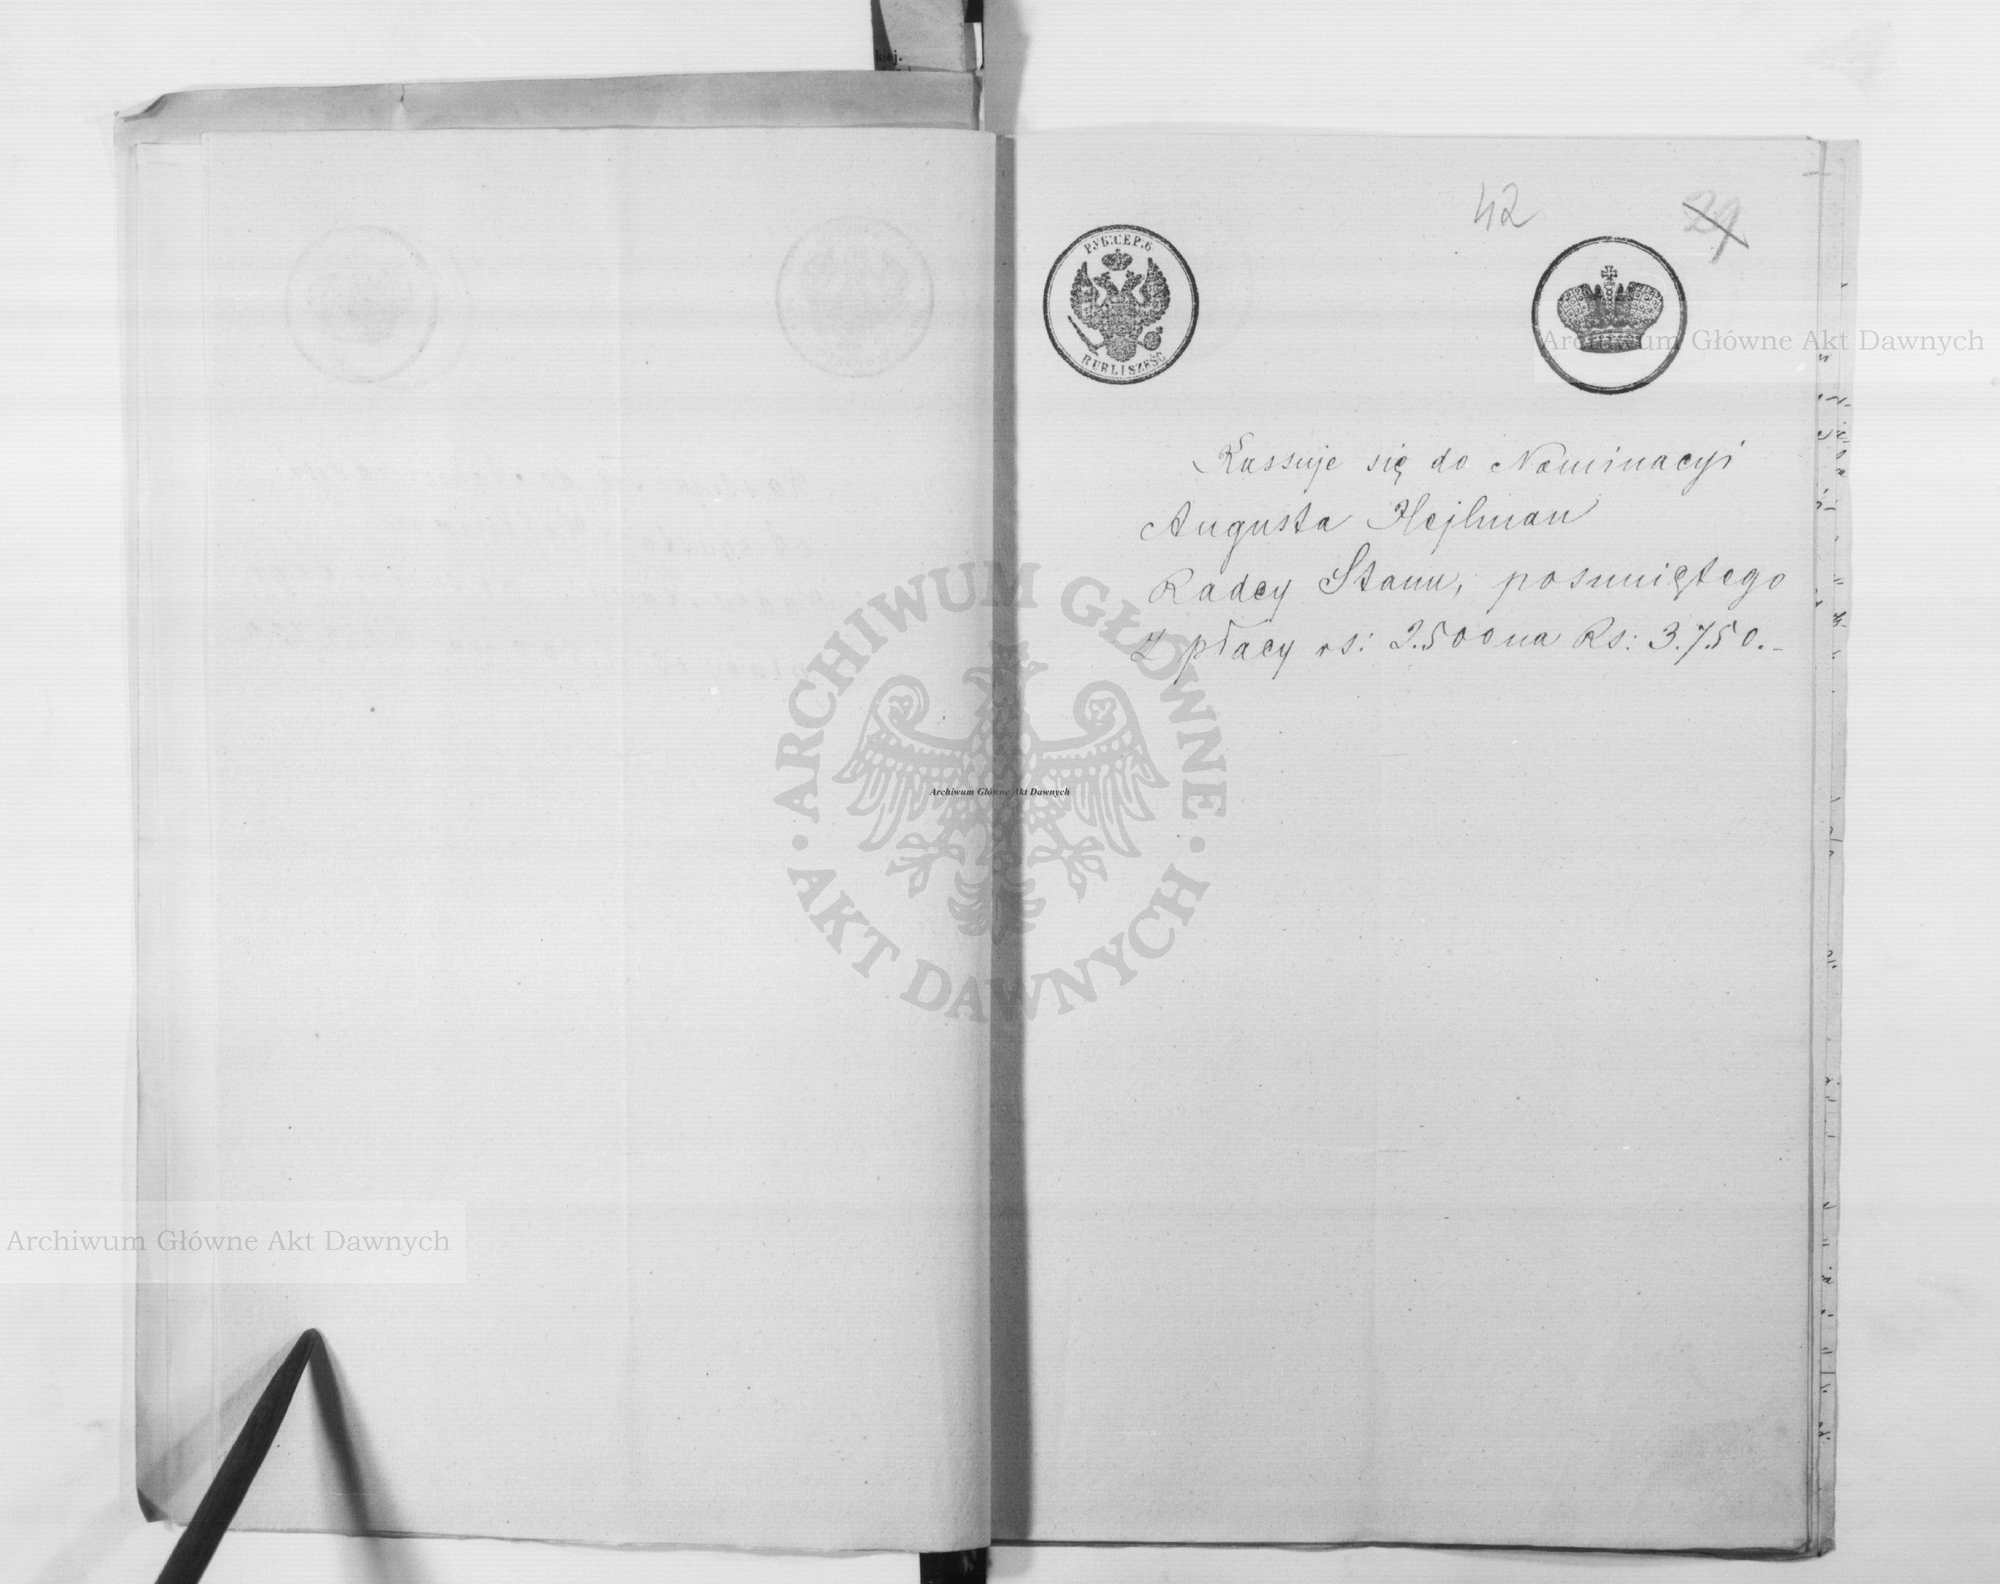 kiej.
42
29
РУБ.СЕР. 6
RUBLI SZEŚĆ
Kassuje się do Nominacyi
Augusta Hejlman
Radcy Stanu, posuniętego
z płacy rs: 2.500 na Rs: 3.750.-
Archiwum Główne Akt Dawnych
ARCHIWUM GŁÓWNE
AKT DAWNYCH
Archiwum Główne Akt Dawnych
Archiwum Główne Akt Dawnych